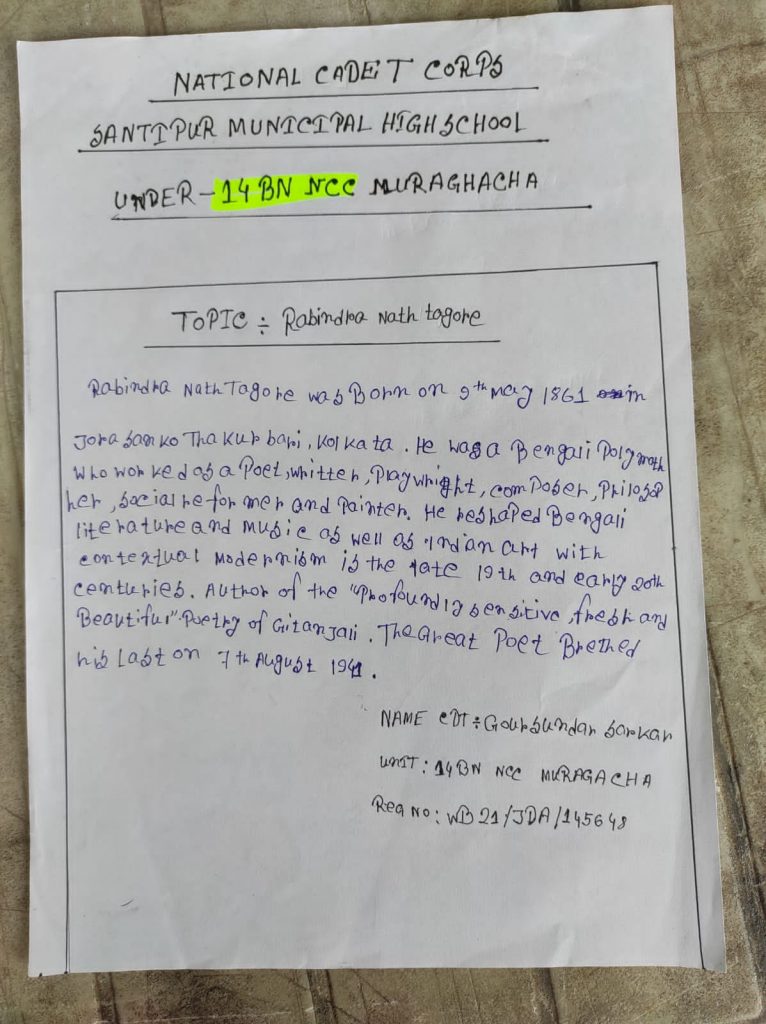 NATIONAL CADET CORPS
SANTIPUR MUNICIPAL HIGH SCHOOL
UNDER - 14 BN NCC MURAGHACHA
TOPIC ÷ Rabindra Nath tagore
Rabindra Nath Tagore was Born on 9th may 1861 in
Jora sanko Thakur bari, Kolkata. He was a Bengali Polymath
Who worked as a Poet, writter, Playwright, composer, Philosop
her, social reformer and Painter. He reshaped Bengali
literature and music as well as Indian art with
contextual Modernism is the late 19th and early 20th
centuries. Author of the "Profoundly sensitive, fresh and
Beautiful" Poetry of Gitanjali. The Great Poet Brethed
his Last on 7th August 1941.
NAME CDT ÷ Goursundar Sarkar
UNIT: 14 BN NCC MURAGACHA
Reg No: WB 21/JDA/145648